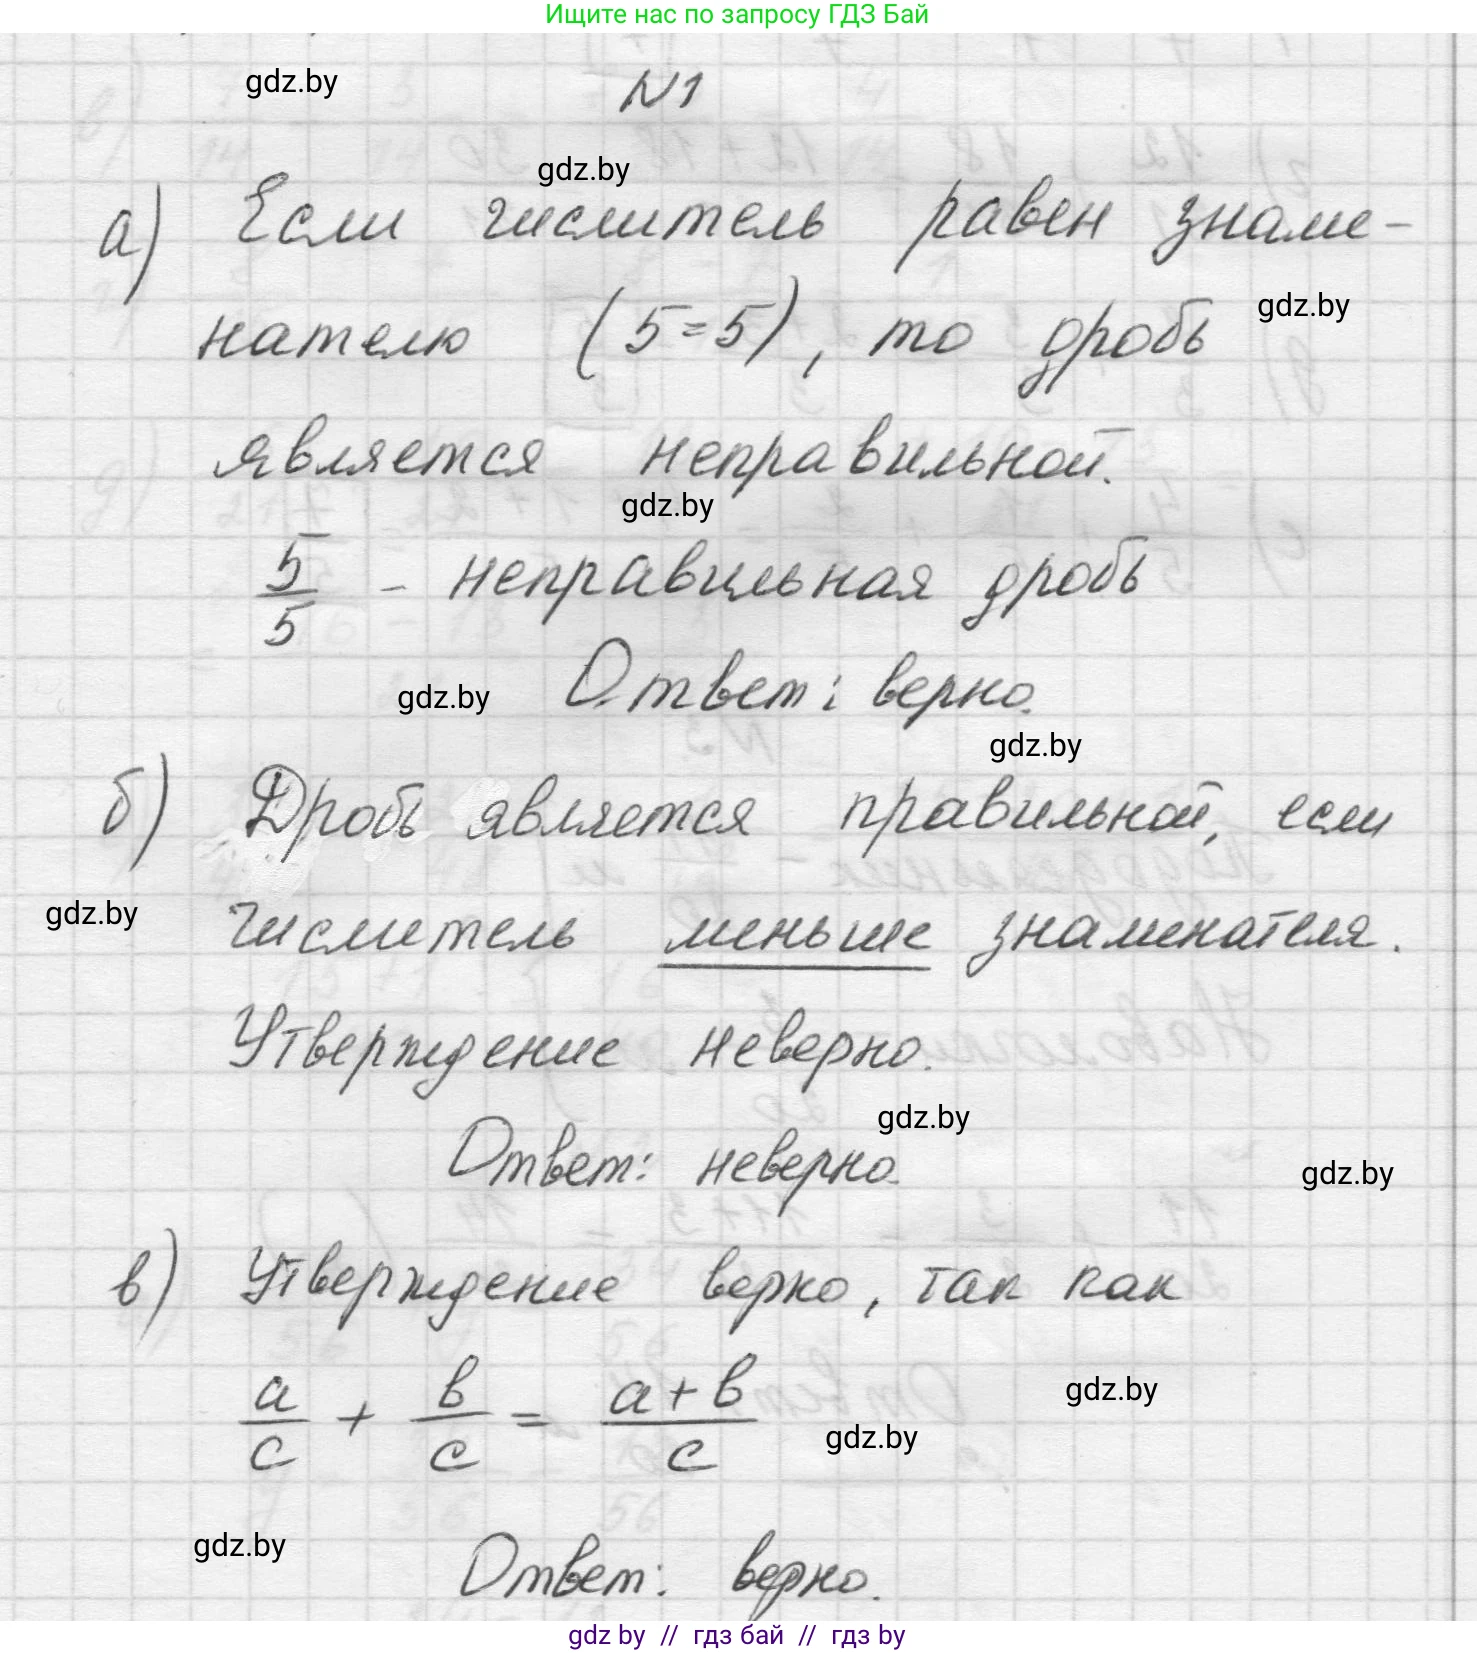 Ищите нас по запросу ГДЗ Бай
gdz.by
N1
gdz.by
а) Если числитель равен знаме-
нателю (5=5), то дробь
gdz.by
является неправильной.
gdz.by
5/5 - неправильная дробь
gdz.by
Ответ: верно.
gdz.by
б) Дробь является правильной, если
gdz.by
числитель меньше знаменателя.
Утверждение неверно.
gdz.by
Ответ: неверно.
gdz.by
в) Утверждение верно, так как
a/c + b/c = a+b/c
gdz.by
gdz.by
gdz.by
Ответ: верно.
gdz by // гдз бай // гдз by